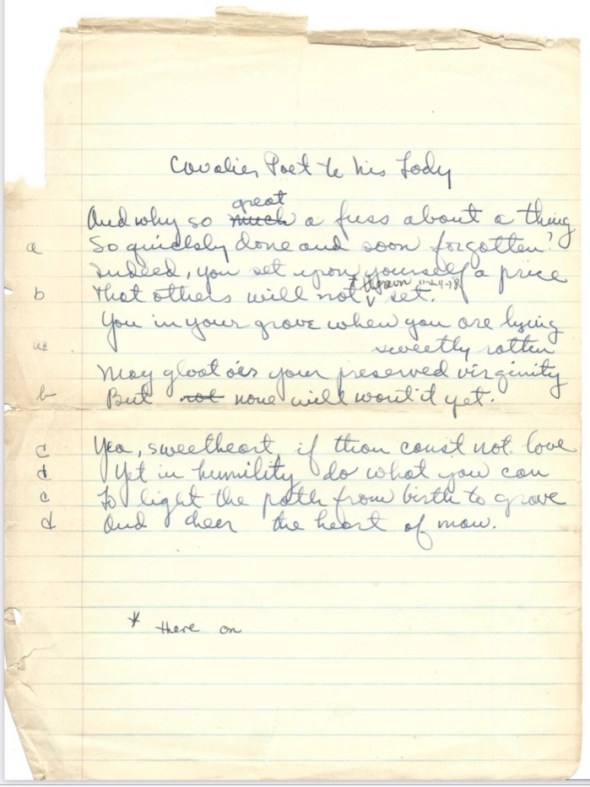 Cavalier Poet to his Lady
great
And why so much a fuss about a thing
a So quickly done and soon forgotten?
Indeed, you set upon yourself a price
* thereon 11-24-78
b that others will not set.
You in your grave when you are lying
a sweetly rotten
May gloat o'er your preserved virginity
b But not none will want it yet.
c Yea, sweetheart, if thou canst not love
d Yet in humility do what you can
c To light the path from birth to grave
d And cheer the heart of man.
* there on